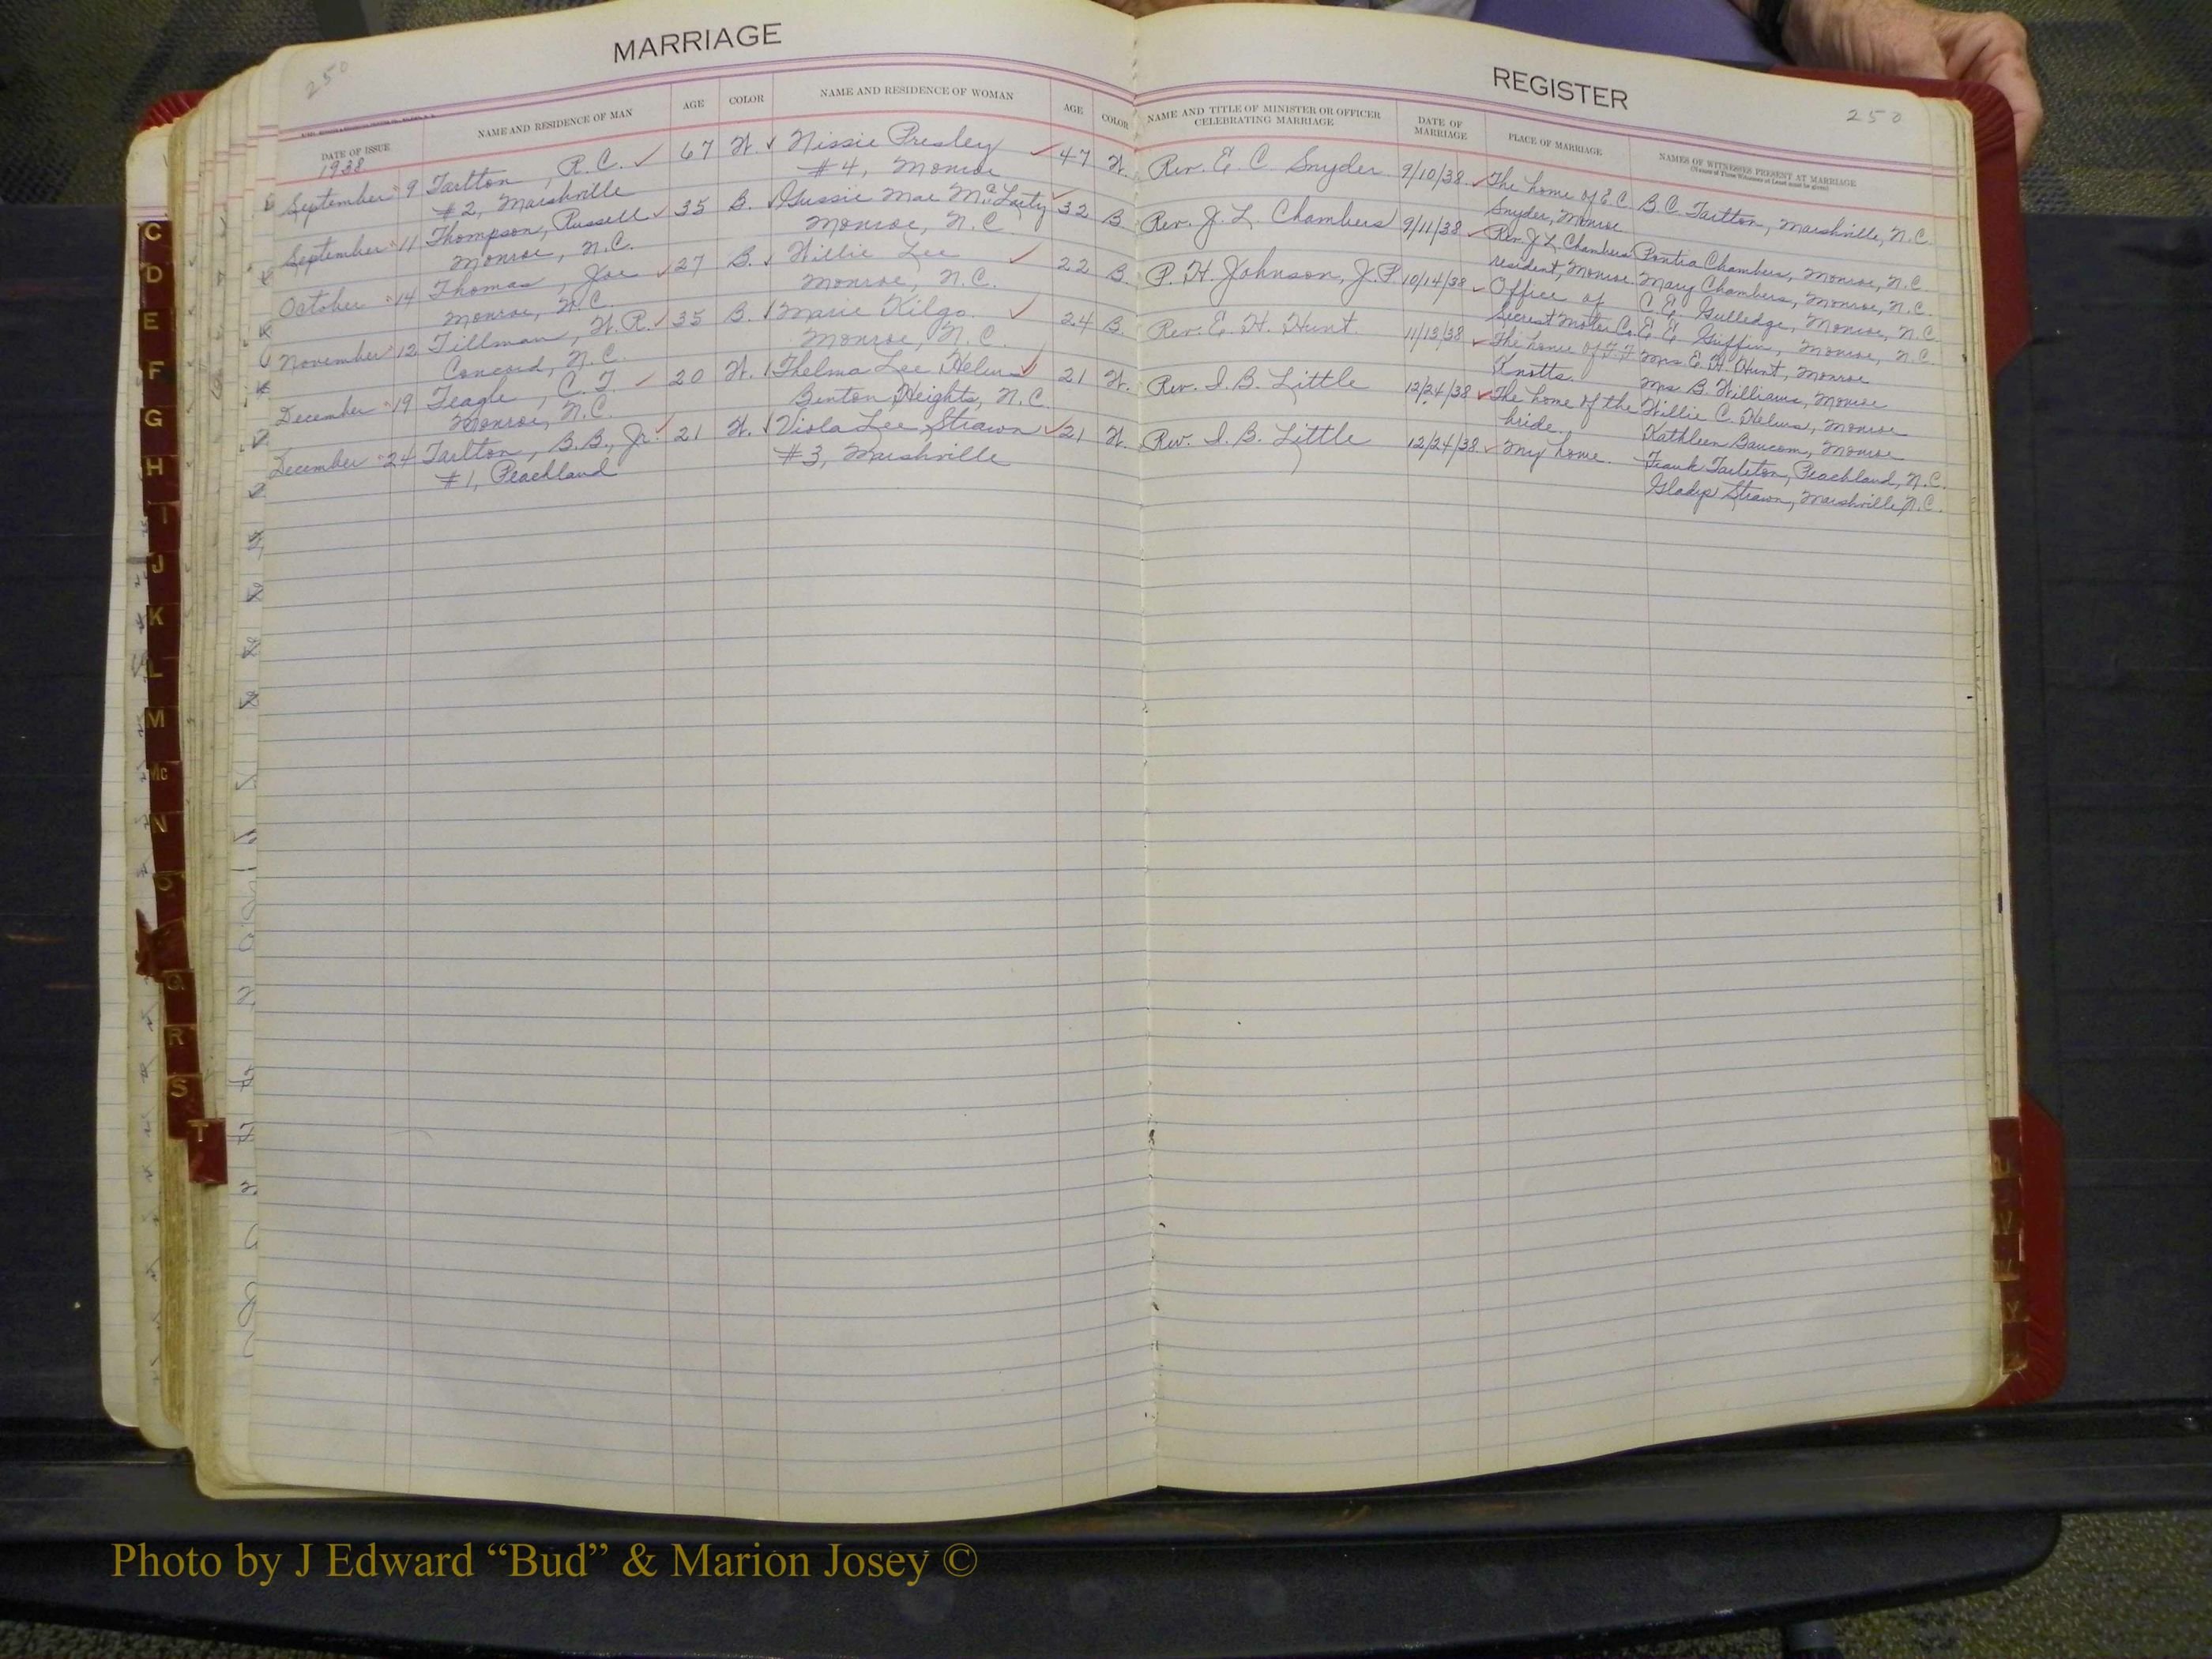 250
MARRIAGE
DATE OF ISSUE
NAME AND RESIDENCE OF MAN
AGE
COLOR
NAME AND RESIDENCE OF WOMAN
AGE
COLOR
1938
September 9 Tarlton, R.C. 67 W. Nissie Presley 47 W.
#2, Marshville #4, Monroe
September 11 Thompson, Russell 35 B. Gussie Mae McLarty 32 B.
Monroe, N.C. Monroe, N.C.
October 14 Thomas, Joe 27 B. Willie Lee 22 B.
Monroe, N.C. Monroe, N.C.
November 12 Tillman, W.R. 35 B. Marie Kilgo. 24 B.
Concord, N.C. Monroe, N.C.
December 19 Teagle, C.T 20 W. Thelma Lee Helms 21 W.
Monroe, N.C. Benton Heights, N.C.
December 24 Tarlton, B.B., Jr. 21 W. Viola Lee Strawn 21 W.
#1, Peachland #3, Marshville
REGISTER
250
NAME AND TITLE OF MINISTER OR OFFICER
CELEBRATING MARRIAGE
DATE OF
MARRIAGE
PLACE OF MARRIAGE
NAMES OF WITNESSES PRESENT AT MARRIAGE
(Names of Three Witnesses at Least must be given)
Rev. E. C. Snyder 9/10/38 The home of E.C. B.C. Tarlton, Marshville, N.C.
Snyder, Monroe
Rev. J. L. Chambers 9/11/38 Rev. J L Chambers Pontia Chambers, Monroe, N.C
resident, Monroe. Mary Chambers, Monroe, N.C.
P. H. Johnson, J.P. 10/14/38 Office of C. E. Gulledge, Monroe, N.C.
Secrest Motor Co. E. E. Griffin, Monroe, N.C.
Rev. E. H. Hunt. 11/13/38 The home of Mrs E. H. Hunt, Monroe
Knotts. Mrs B. Williams, Monroe
Rev. I. B. Little 12/24/38 The home of the Willie C. Helms, Monroe
bride. Kathleen Baucom, Monroe
Rev. I. B. Little 12/24/38 My home. Frank Tarleton, Peachland, N.C.
Gladys Strawn, Marshville, N.C.
C
D
E
F
G
H
I
J
K
L
M
Mc
N
O
Q
R
S
T
U
V
W
Y
Photo by J Edward “Bud” & Marion Josey ©